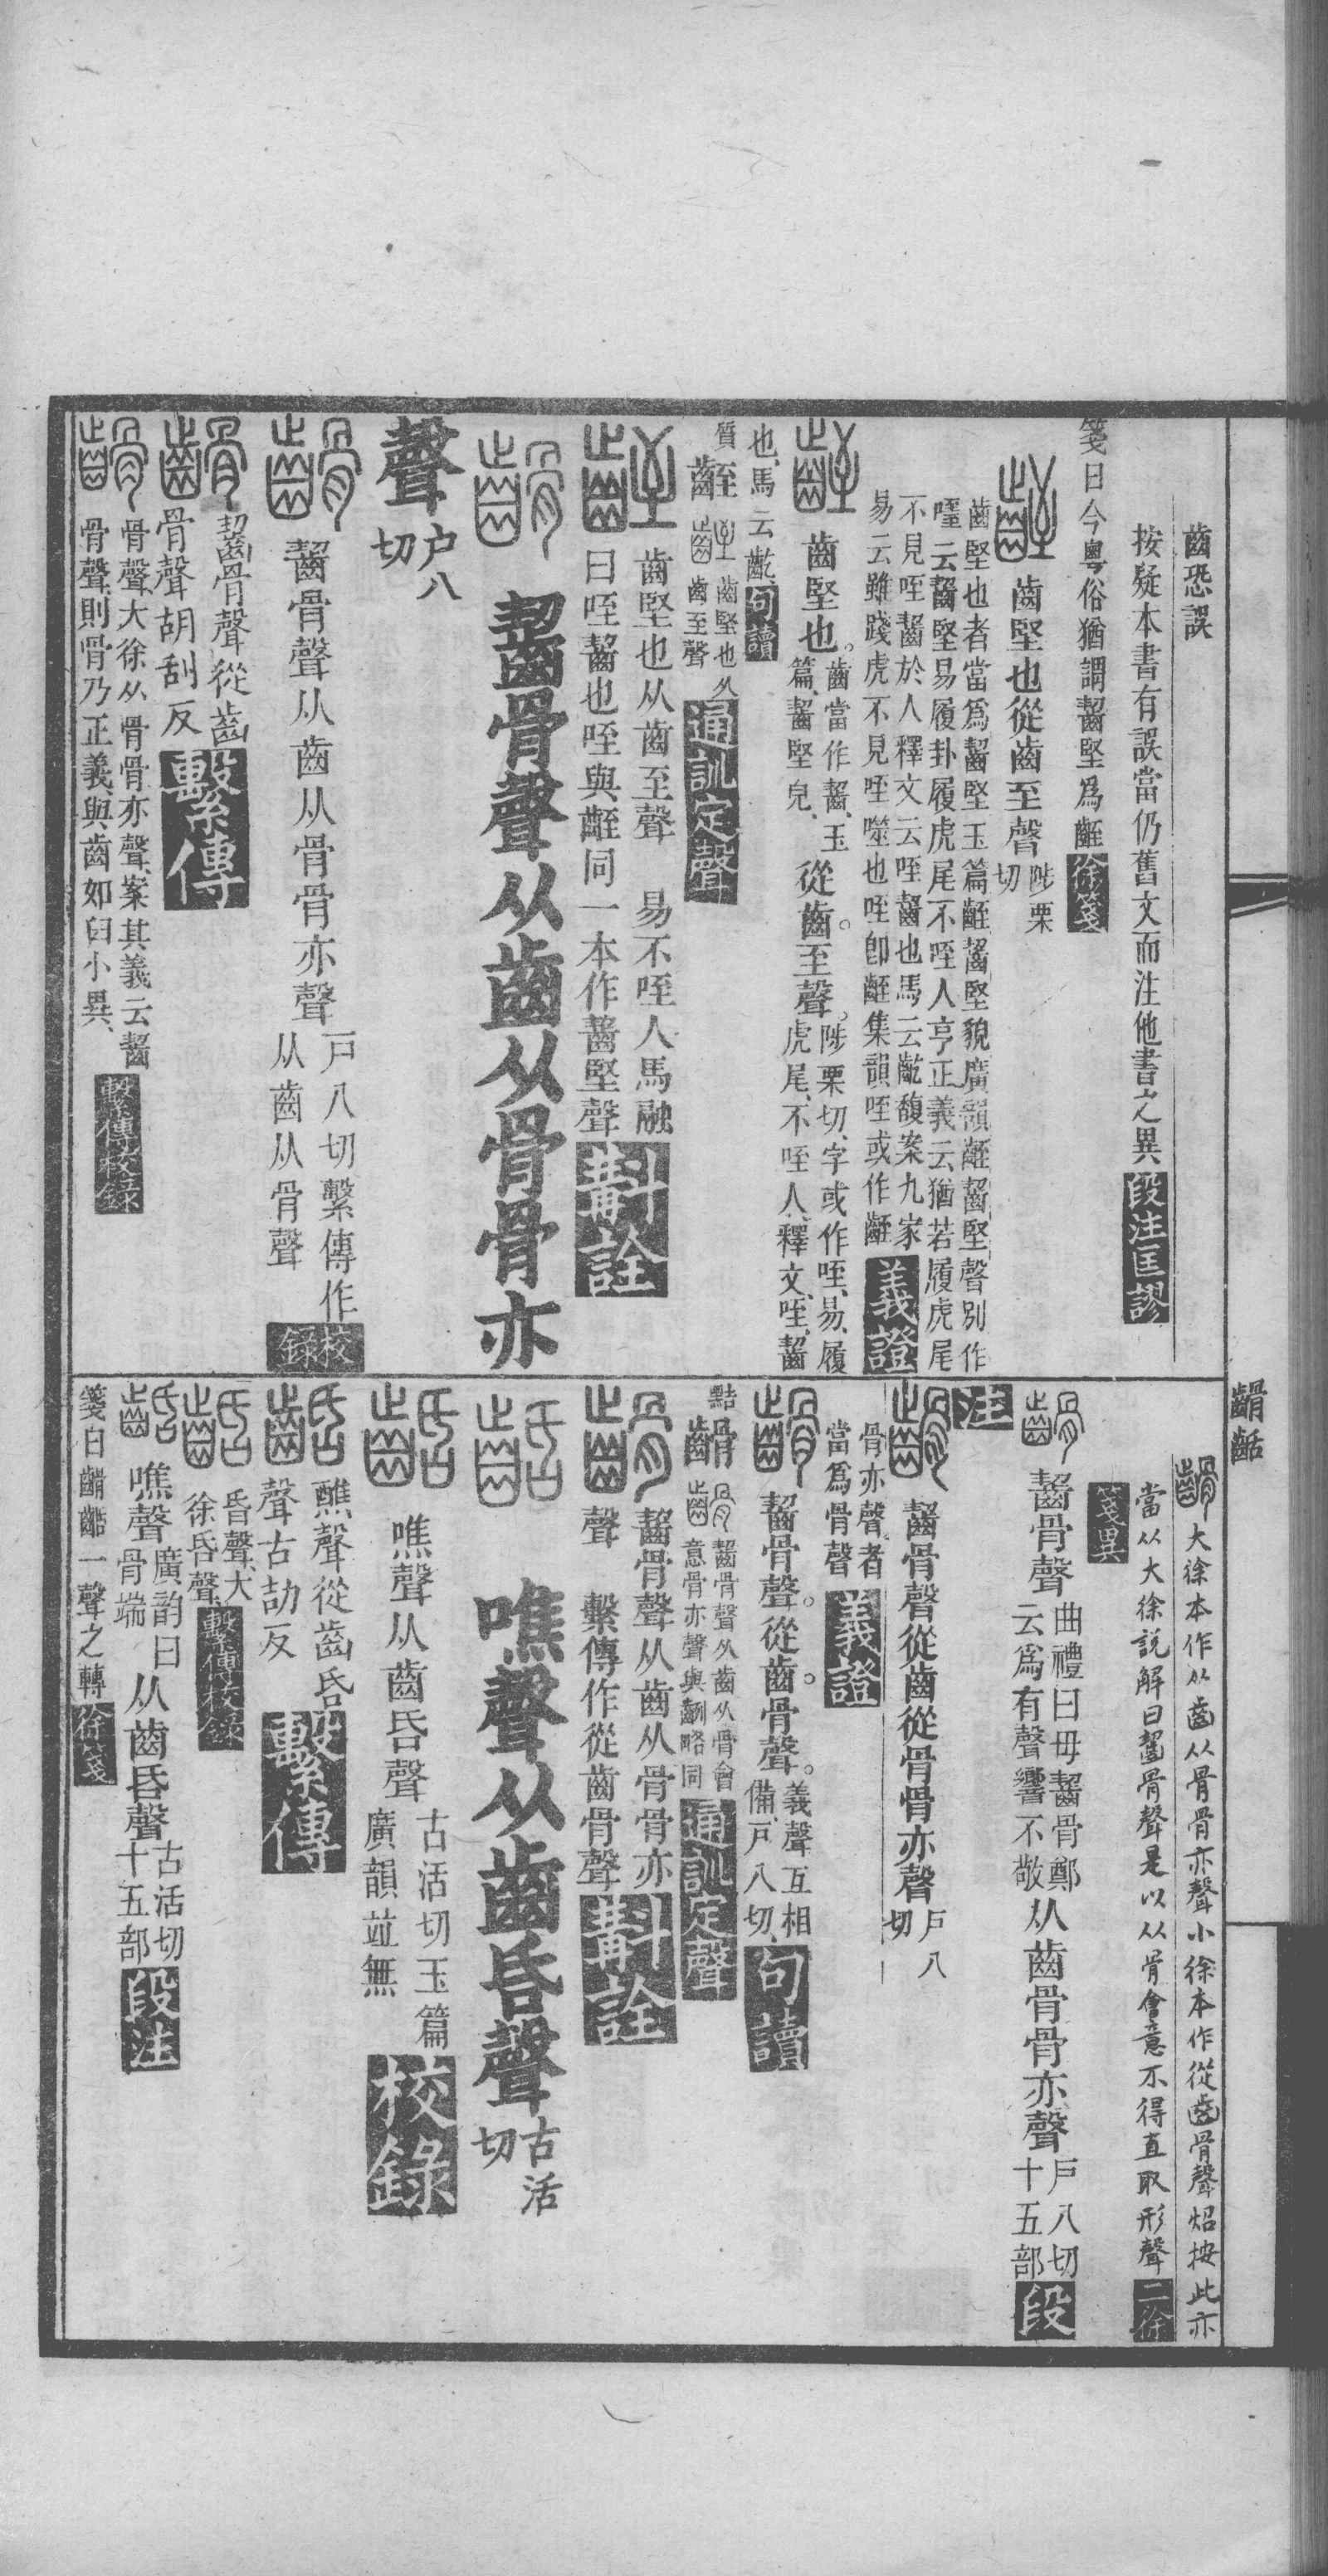 齒恐誤
按疑本書有誤當仍舊文而注他書之異 段注匡謬
箋曰今粵俗猶謂齧堅爲齷 徐箋
齒堅也從齒至聲 陟栗
切
齒堅也者當爲齧堅玉篇𪘏齧堅貌廣韻𪘏齧堅聲別作
云齧堅易履卦履虎尾不咥人亨正義云猶若履虎尾
不見咥齧於人釋文云咥齧也馬云齕馥案九家
易云雖踐虎不見咥噬也咥卽𪘏集韻咥或作𪘏 義證
齒堅也。 齒當作齧、玉
篇、齧堅皃、
從齒。至聲。 陟栗切、字或作咥、易、履
虎尾、不咥人、釋文、咥、齧
也、馬云齕、 句讀
質 齒堅也从
齒至聲 通訓定聲
齒堅也从齒至聲 易不咥人馬融
曰咥齧也咥與𪘏同一本作齧堅聲 斠詮
齧骨聲从齒从骨骨亦
聲 户八
切
齧骨聲从齒从骨骨亦聲 戸八切繫傳作
从齒从骨聲 校錄
齧骨聲從齒
骨聲胡刮反 繫傳
骨聲、大徐从骨骨亦聲、案其義云齧
骨聲、則骨乃正義、與齒如臼小異、 繫傳校錄
齰𪗽
大徐本作从齒从骨骨亦聲小徐本作從齒骨聲炤按此亦
當从大徐説解曰齧骨聲是以从骨會意不得直取形聲 二徐
箋異
齧骨聲 曲禮曰毋齧骨鄭
云爲有聲響不敬
从齒骨骨亦聲 戸八切
十五部 段
注
齧骨聲從齒從骨骨亦聲 戸八
切
骨亦聲者
當爲骨聲 義證
齧骨聲。從齒。骨聲。 義聲互相
備、戸八切、 句讀
黠 齧骨聲从齒从骨會
意骨亦聲與齭略同 通訓定聲
齧骨聲从齒从骨骨亦
聲 繫傳作從齒骨聲 斠詮
噍聲从齒昏聲 古活
切
噍聲从齒昏聲 古活切玉篇
廣韻竝無 校錄
醮聲從齒昏
聲古劼反 繫傳
昏聲、大
徐昏聲、 繫傳校錄
噍聲 廣韵曰
骨端
从齒昏聲 古活切
十五部 段注
箋曰䶝𪗽一聲之轉 徐箋